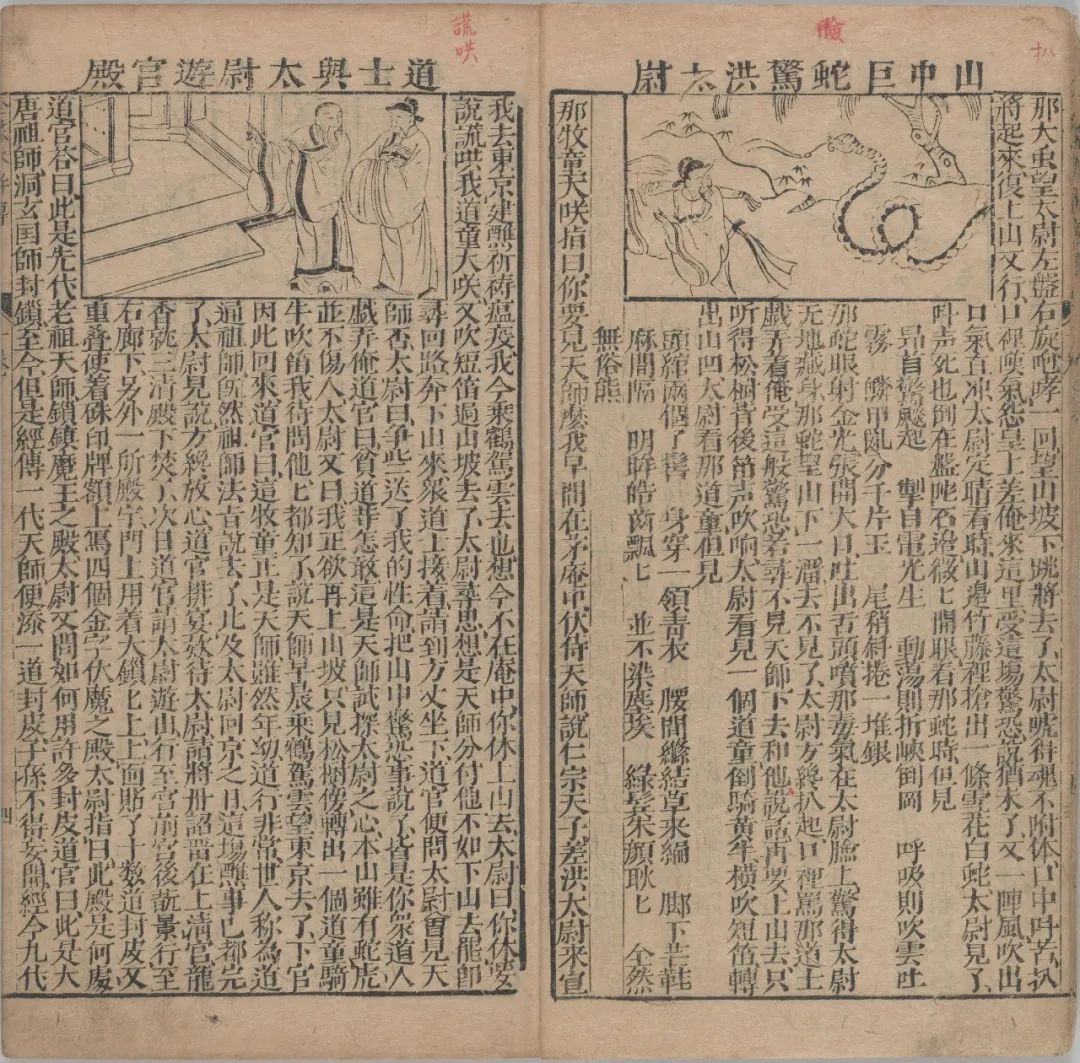 扒
臉
謊哄
山中巨蛇驚洪太尉
那大虫望太尉左盤右旋咆哮一回望山坡下跳將去了太尉唬得魂不附体口中叫苦扒
將起來復上山又行口裡嘆氣怨皇上差俺來這里受這場驚恐說猶未了又一陣風吹出
口氣直冲太尉定睛看時山邊竹藤裡搶出一條雪花白蛇太尉見了
叫声死也倒在盤陀石边微匕開眼看那蛇時但見
昂首驚飈起　掣目電光生　動蕩則折峽倒岡　呼吸則吹雲吐
霧　鱗甲亂分千片玉　尾稍斜捲一堆銀
那蛇眼射金光張開大口吐出舌頭噴那毒氣在太尉臉上驚得太尉
无地藏身那蛇望山下一溜去不見了太尉方纔扒起口裡罵那道士
戲弄着俺受這般驚恐若尋不見天師下去和他說話再要上山去只
听得松樹背後笛声吹响太尉看見一個道童倒騎黃牛橫吹短笛轉
出山凹太尉看那道童但見
頭綰兩個丫髻　身穿一領青衣　腰間絛結草來編　脚下芒鞋
麻間隔　明眸皓齒飄匕　並不染塵埃　綠髮朱顔耿匕　全然
無俗態
那牧童大咲指曰你要見天師麽我早間在茅庵中伏侍天師說仁宗天子差洪太尉來宣
道士與太尉遊宫殿
我去東京建醮祈祷瘟疫我今乘鶴駕雲去也想今不在庵中你休上山去太尉曰你休要
說謊哄我道童大咲又吹短笛過山坡去了太尉尋思想是天師分付他不如下山去罷卽
尋回路奔下山來衆道士接着請到方丈坐下道官便問太尉曾見天
師否太尉曰爭些送了我的性命把山中驚恐事說了皆是你衆道人
戲弄俺道官曰貧道等怎敢這是天師試探太尉之心本山雖有蛇虎
並不傷人太尉又曰我正欲再上山坡只見松樹傍轉出一個道童騎
牛吹笛我待問他匕都知了說天師早辰乘鶴駕雲望東京去了下官
因此回來道官曰這牧童正是天師雖然年幼道行非常世人称為道
通祖師旣然祖師法旨說去了比及太尉回京之日這場醮事已都完
了太尉見說方纔放心道官排宴欸待太尉請將丹詔晋在上清宫龍
香就三清殿下焚了次日道官請太尉遊山行至宫前宫後翫景行至
右廊下另外一所殿宇門上用着大鎖匕上上面貼了十数道封皮又
重叠使着硃印牌額上寫四個金字伏魔之殿太尉指曰此殿是何處
道官荅曰此是先代老祖天師鎖鎮魔王之殿太尉又問如何用許多封皮道官曰此是大
唐祖師洞玄国師封鎖至今但是經傳一代天師便添一道封皮子孫不得妄開經今九代
四